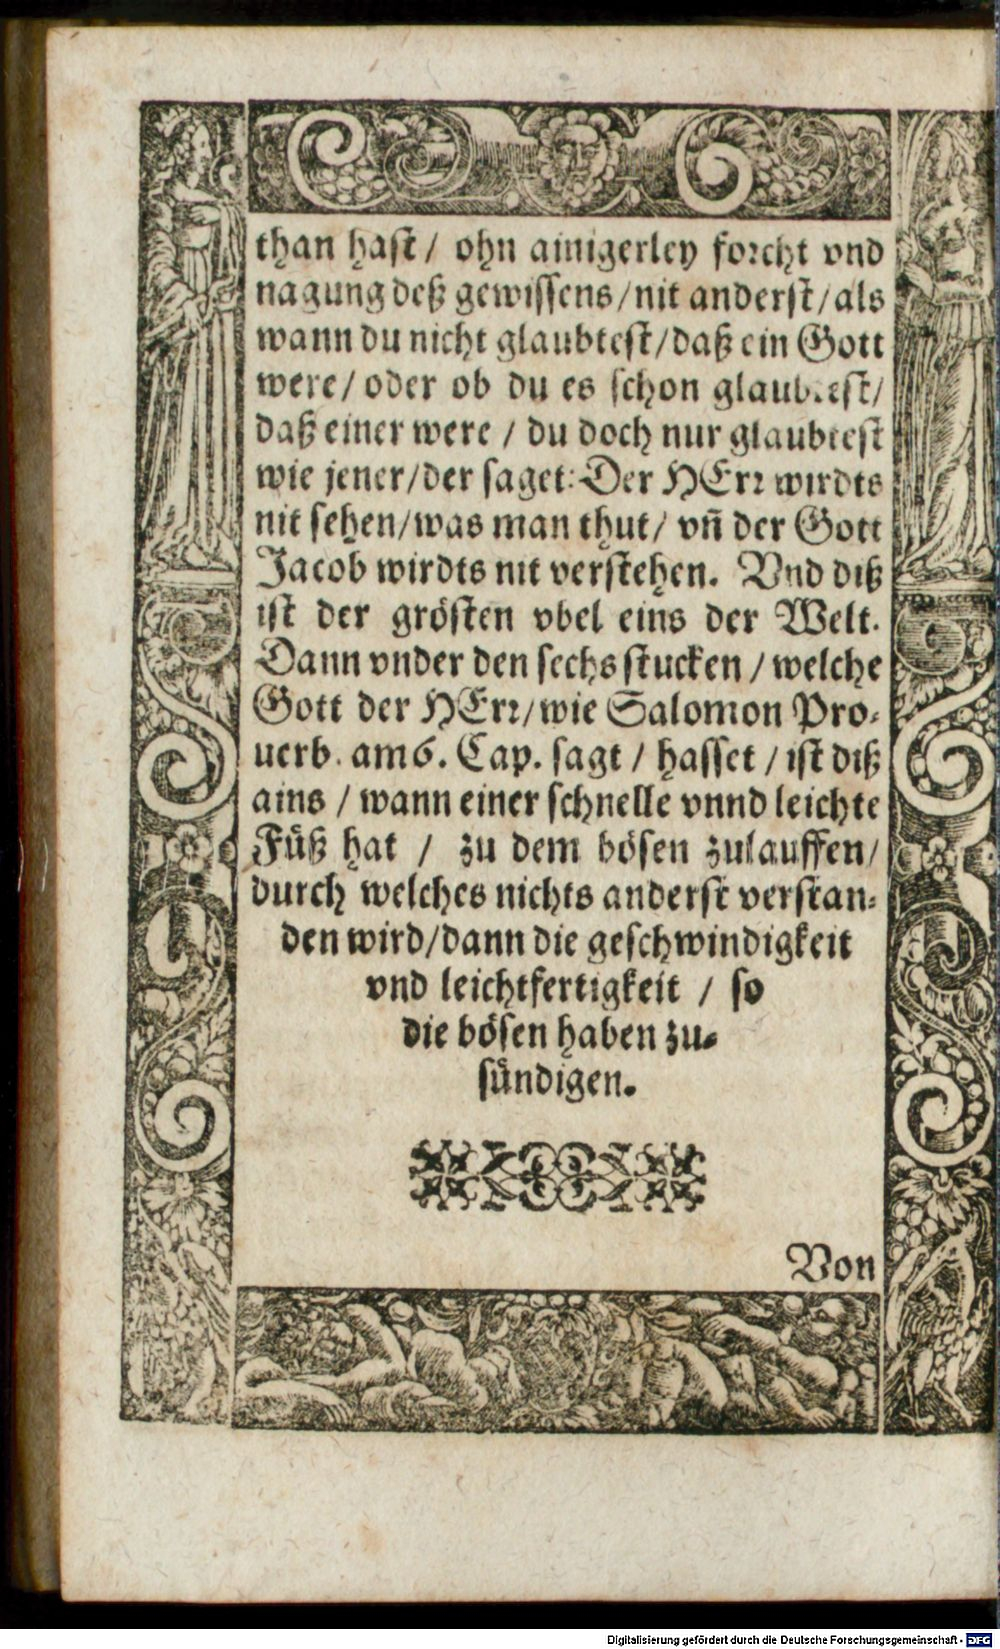 than hast/ ohn ainigerley forcht vnd
nagung deß gewissens/nit anderst/als
wann du nicht glaubtest/daß ein Gott
were/ oder ob du es schon glaubtest/
daß einer were / du doch nur glaubtest
wie jener/der saget: Der HErr wirdts
nit sehen/was man thut/ vn̄ der Gott
Jacob wirdts nit verstehen. Vnd diß
ist der grösten vbel eins der Welt.
Dann vnder den sechs stucken / welche
Gott der HErr/wie Salomon Pro-
uerb. am 6. Cap. sagt / hasset / ist diß
ains / wann einer schnelle vnnd leichte
Füß hat / zu dem bösen zulauffen/
durch welches nichts anderst verstan-
den wird/dann die geschwindigkeit
vnd leichtfertigkeit / so
die bösen haben zu-
sündigen.
Von
Digitalisierung gefördert durch die Deutsche Forschungsgemeinschaft - DFG